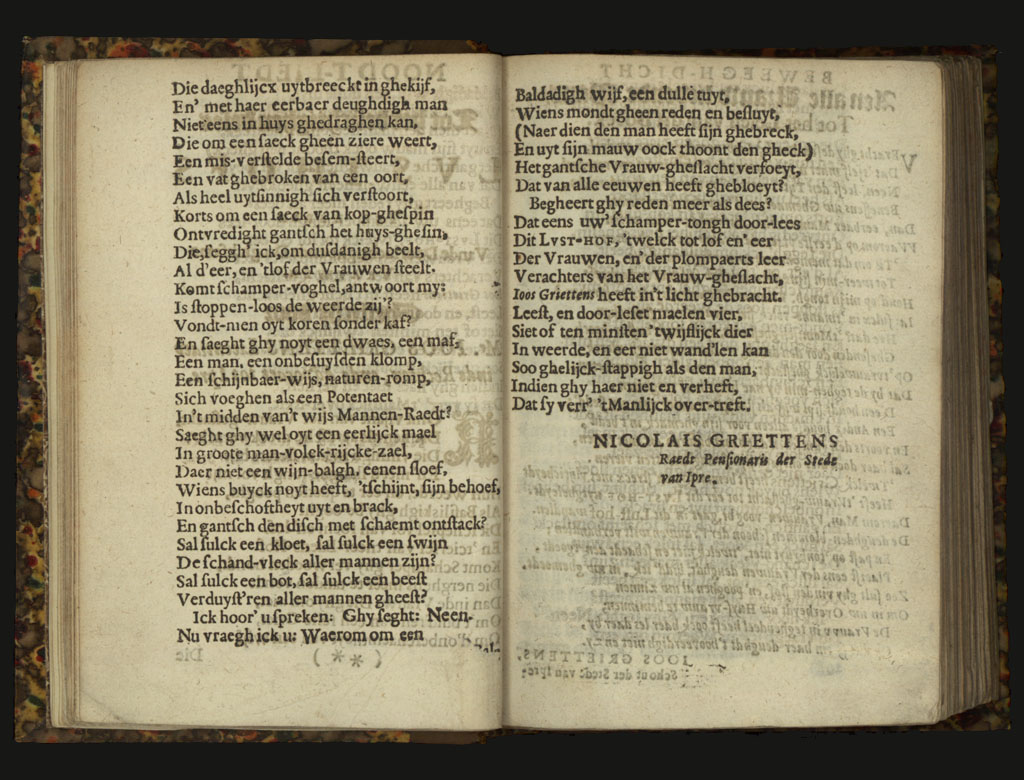 Die daeghlijcx uytbreeckt in ghekijf,
En' met haer eerbaer deughdigh man
Niet eens in huys ghedraghen kan,
Die om een saeck gheen ziere weert,
Een mis-verstelde besem-steert,
Een vat ghebroken van een oort,
Als heel uytsinnigh sich verstoort,
Korts om een saeck van kop-ghespin
Ontvredight gantsch het huys-ghesin,
Die, seggh' ick, om dusdanigh beelt,
Al d'eer, en 'tlof der Vrauwen steelt.
Komt schamper-voghel, antwoort my:
Is stoppen-loos de weerde zij'?
Vondt-men oyt koren sonder kaf?
En saeght ghy noyt een dwaes, een maf,
Een man, een onbesuysden klomp,
Een schijnbaer-wijs, naturen-romp,
Sich voeghen als een Potentaet
In't midden van't wijs Mannen-Raedt?
Saeght ghy wel oyt een eerlijck mael
In groote man-volck-rijcke-zael,
Daer niet een wijn-balgh, eenen sloef,
Wiens buyck noyt heeft, 'tschijnt, sijn behoef,
In onbeschoftheyt uyt en brack,
En gantsch den disch met schaemt ontstack?
Sal sulck een kloet, sal sulck een swijn
De schand-vleck aller mannen zijn?
Sal sulck een bot, sal sulck een beest
Verduyst'ren aller mannen gheest?
Ick hoor' u spreken: Ghy seght: Neen.
Nu vraegh ick u: Waerom om een
Baldadigh wijf, een dulle tuyt,
Wiens mondt gheen reden en besluyt,
(Naer dien den man heeft sijn ghebreck,
En uyt sijn mauw oock thoont den gheck)
Het gantsche Vrauw-gheslacht verfoeyt,
Dat van alle eeuwen heeft ghebloeyt?
Begheert ghy reden meer als dees?
Dat eens uw' schamper-tongh door-lees
Dit LVST-HOF, 'twelck tot lof en' eer
Der Vrauwen, en' der plompaerts leer
Verachters van het Vrauw-gheslacht,
Ioos Griettens heeft in't licht ghebracht.
Leest, en door-leset maelen vier,
Siet of ten minsten 'twijflijck dier
In weerde, en eer niet wand'len kan
Soo ghelijck-stappigh als den man,
Indien ghy haer niet en verheft,
Dat sy verr' 'tManlijck over-treft.
NICOLAIS GRIETTENS
Raedt Pensionaris der Stede
van Ipre.